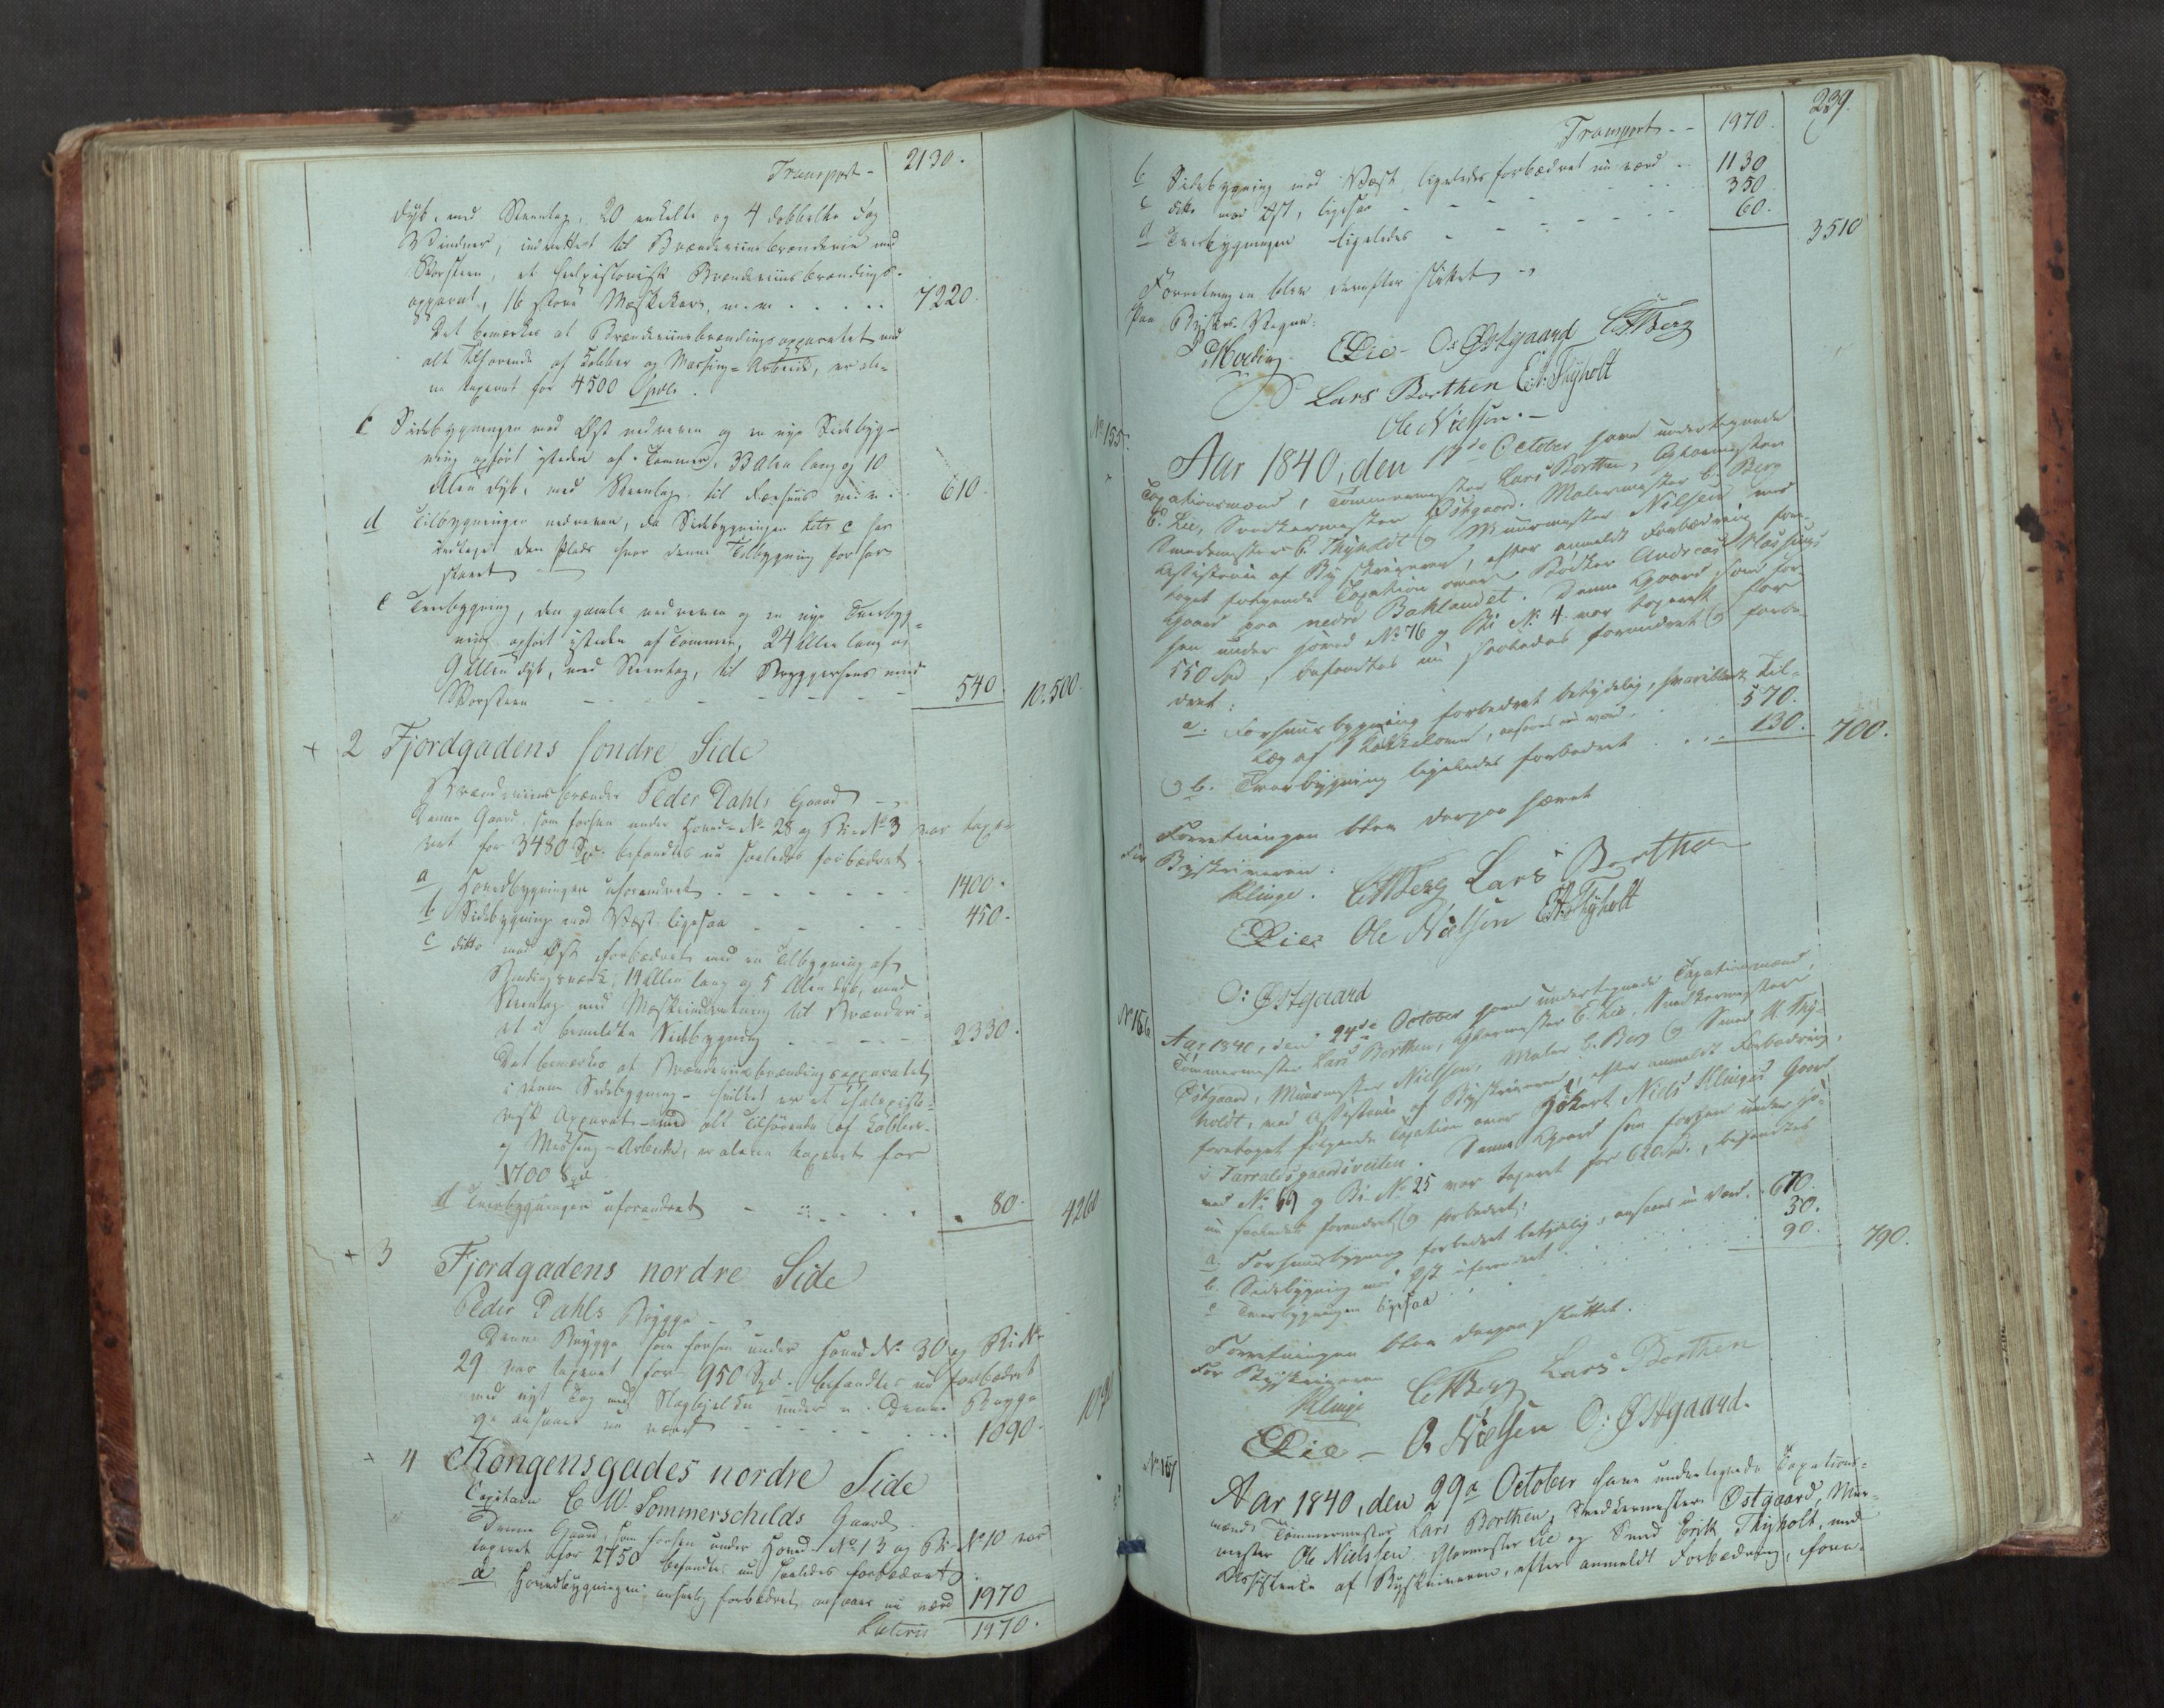 Transport - 2130.
dyb, med Steentag, 20 enkelte og 4 dobbelte Fag
Vinduer, indrettet til Brændeviinsbrænderie med
Skorsteen, et Brændeviinsbrændings-
apparat, 16 store Mæskekar, m.m. . . . . . 7220.
Det bemærkes at Brændeviinsbrændingsapparatet med
alt Tilhørende af Kobber og Messing-Arbeide, er ale-
ne taxeret for 4500 Spdlr.
c Sidebygningen mod Øst nedreven og en nye Sidebyg-
ning opført isteden af Tømmer, 33 Alen lang og 10
Alen dyb, med Steentag til Fæehuus m.m. . 610.
d Tilbygningen nedreven, da Sidebygningen Litr. c har
indtaget den Plads hvor denne Tilbygning før har
staaet
e Tverbygning, den gamle nedreven og en nye Tverbyg-
ning opført isteden af Tømmer, 24 Alen lang og
9 Alen dyb, med Steentag, til Bryggerhuus med
Skorsteen - - - - - - 540. 10,500.
+ 2 Fjordgadens søndre Side
Brændeviinsbrænder Peder Dahls Gaard -
Denne Gaard, som forhen under Hoved-No 28 og Bi-No 3 var taxe-
ret for 3480 Spd. befandtes nu saaledes forbedret
a Hovedbygningen uforandret . - - - - - 1400.
b Sidebygning mod Vest ligesaa - - - - 450.
c ditto mod Øst forbedret med en Tilbygning af
Bindingsværk, 14 Alen lang og 5 Alen dyb, med
Steentag med Mæskeindretning til Brænderi-
et i bemeldte Sidebygning - - - - - 2330.
Det bemærkes at Brændeviinsbrændingsapparatet
i denne Sidebygning - hvilket er et
Apparat - med alt Tilhørende af Kobber-
og Messing-Arbeide, er alene taxeret for
1700 Spd.
d Tverbygningen uforandret - - . . . 80. 4260
+ 3 Fjordgadens nordre Side
Peder Dahls Brygge -
Denne Brygge som forhen under Hoved No 30 og Bi No
29 var taxeret for 950 Spd. befandtes nu forbedret
med nyt Tag med under m. Denne Brygge
ansaaes nu værd - - - - - . . . 1090. 1090
+ 4 Kongensgades nordre Side
Capitain C. W. Sommerschilds Gaard.
Denne Gaard, som forhen under Hoved No 13 og Bi-No 10 var
taxeret for 2750 befandtes nu saaledes forbedret
a Hovedbygningen forbedret ansaaes nu værd 1970
Lateris 1970.
239.
Transport - - 1970.
b Sidebygning mod Vest ligeledes forbedret nu værd - . 1130
c ditto mod Øst, ligesaa - - - - - 350
d Tverbygningen ligeledes - - - - - 60. 3510
Forretningen blev derefter sluttet -
Paa Byskr. Vegne:
CLie - O: Østgaard CHBerg
Lars Borthen E.A. Thyholt
Ole Nielsen. -
No 155.
Aar 1840, den 17de October have undertegnede
Taxationsmænd, Tømmermester Lars Borthen, Glarmester
C. Lie, Snedkermester Østgaard, Malermester C. Berg
Smedemester E. Thyholdt og Muurmester Nilsen med
Assistence af Byskriveren, efter anmeldt Forbedring fore-
taget følgende Taxation over Bødker Andreas
Gaard paa nedre Baklandet. Denne Gaard som for
hen under Hoved No 76 og Bi No 4 var taxeret for
550 Spd, befandtes nu saaledes forandret og forbe-
dret:
a. Forhuusbygning forbedret betydelig, Til-
læg af 1 Kakkelovn, ansaaes nu værd . 570.
og b. Tverbygning ligeledes forbedret . . . . 130. 700.
Forretningen blev derpaa hævet
For
Byskriveren.
Klinge. CHBerg Lars Borthen
CLie Ole Nielsen E.A.Thyholt
O: Østgaard
No 156
Aar 1840, den 24de October have undertegnede Taxationsmænd,
Tømmermester Lars Borthen, Glarmester C. Lie, Snedkermester
Østgaard, Muurmester Nielsen, Maler C. Berg og Smed Thy-
holdt, med Assistence af Byskriveren, efter anmeldt Forbedring,
foretaget følgende Taxation over Niels Klinges Gaard
i Tarraldsgaardsveiten. Denne Gaard som forhen under Ho-
ved No 69 og Bi-No 25 var taxeret for 620 Spd., befandtes
nu saaledes forandret og forbedret:
a. Forhuusbygning forbedret betydelig, ansaaes nu værd . 670.
b. Sidebygning mod Øst uforandret . . . . . 30.
c Tverbygningen ligesaa . . . . . 90. 790.
Forretningen blev derpaa sluttet.
For Byskriveren
Klinge CHBerg Lars Borthen
CLie - O. Nielsen O: Østgaard.
No 157
Aar 1840, den 29de October have undertegnede Taxations-
mænd Tømmermester Lars Borthen, Snedkermester Østgaard, Muur-
mester Ole Nielsen, Glarmester Lie og Smed Erik Thyholt, med
Assistence af Byskriveren, efter anmeldt Forbedring, fore-